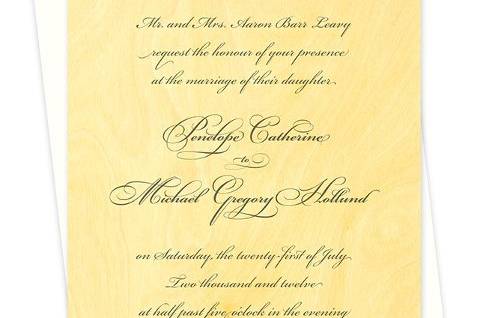 Mr. and Mrs. Aaron Barr Leavy
request the honour of your presence
at the marriage of their daughter
Penelope Catherine
to
Michael Gregory Hollund
on Saturday, the twenty-first of July
Two thousand and twelve
at half past five o'clock in the evening